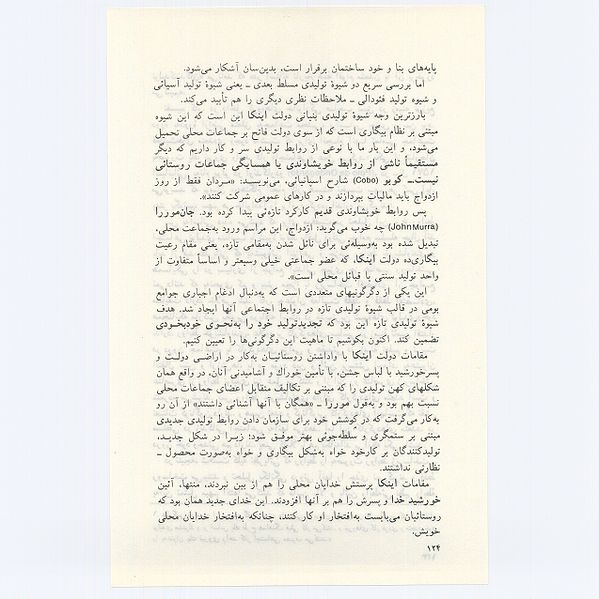 پایه‌های بنا و خود ساختمان برقرار است، بدین‌سان آشکار می‌شود.
اما بررسی سریع دو شیوهٔ تولیدی مسلط بعدی ــ یعنی شیوهٔ تولید آسیائی
و شیوه تولید فئودالی ــ ملاحظات نظری دیگری را هم تأیید می‌کند.
بارزترین وجه شیوهٔ تولیدی بنیانی دولت اینکا این است که این شیوه
مبتنی بر نظام بیگاری است که از سوی دولت فاتح بر جماعات محلی تحمیل
می‌شود، و این بار ما با نوعی از روابط تولیدی سر و کار داریم که دیگر
مستقیماً ناشی از روابط خویشاوندی یا همسایگی جماعات روستائی
نیست. کوبو (Cobo) شارح اسپانیائی، می‌نویسد: «مردان فقط از روز
ازدواج باید مالیات بپردازند و در کارهای عمومی شرکت کنند».
پس روابط خویشاوندی قدیم کارکرد تازه‌ئی پیدا کرده بود. جان‌موررا
(John Murra) چه خوب می‌گوید: ازدواج، این مراسم ورود به‌جماعت محلی،
تبدیل شده بود به‌وسیله‌ئی برای نائل شدن به‌مقامی تازه، یعنی مقام رعیت
بیگاری‌ده دولت اینکا، که عضو جماعتی خیلی وسیعتر و اساساً متفاوت از
واحد تولید سنتی یا قبائل محلی است».
این یکی از دگرگونیهای متعددی است که به‌دنبال ادغام اجباری جوامع
بومی در قالب شیوهٔ تولیدی تازه در روابط اجتماعی آنها ایجاد شد. هدف
شیوهٔ تولیدی تازه این بود که تجدیدتولید خود را به‌نحوی خودبخودی
تضمین کند. اکنون بکوشیم تا ماهیت این دگرگونی‌ها را تعیین کنیم.
مقامات دولت اینکا با واداشتن روستائیان به‌کار در اراضی دولت و
پسرخورشید با لباس جشن، با تأمین خوراك و آشامیدنی آنان، در واقع همان
شکلهای کهن تولیدی را که مبتنی بر تکالیف متقابل اعضای جماعات محلی
نسبت بهم بود و به‌قول موررا ــ «همگان با آنها آشنائی داشتند» از آن رو
به‌کار می‌گرفت که در کوشش خود برای سازمان دادن روابط تولیدی جدیدی
مبتنی بر ستمگری و سلطه‌جوئی بهتر موفق شود؛ زیرا در شکل جدید،
تولیدکنندگان بر کارخود خواه به‌شکل بیگاری و خواه به‌صورت محصول ــ
نظارتی نداشتند.
مقامات اینکا پرستش خدایان محلی را هم از بین نبردند، منتها، آئین
خورشید خدا و پسرش را هم بر آنها افزودند. این خدای جدید همان بود که
روستائیان می‌بایست به‌افتخار او کار کنند، چنانکه به‌افتخار خدایان محلی
خویش.
۱۲۴